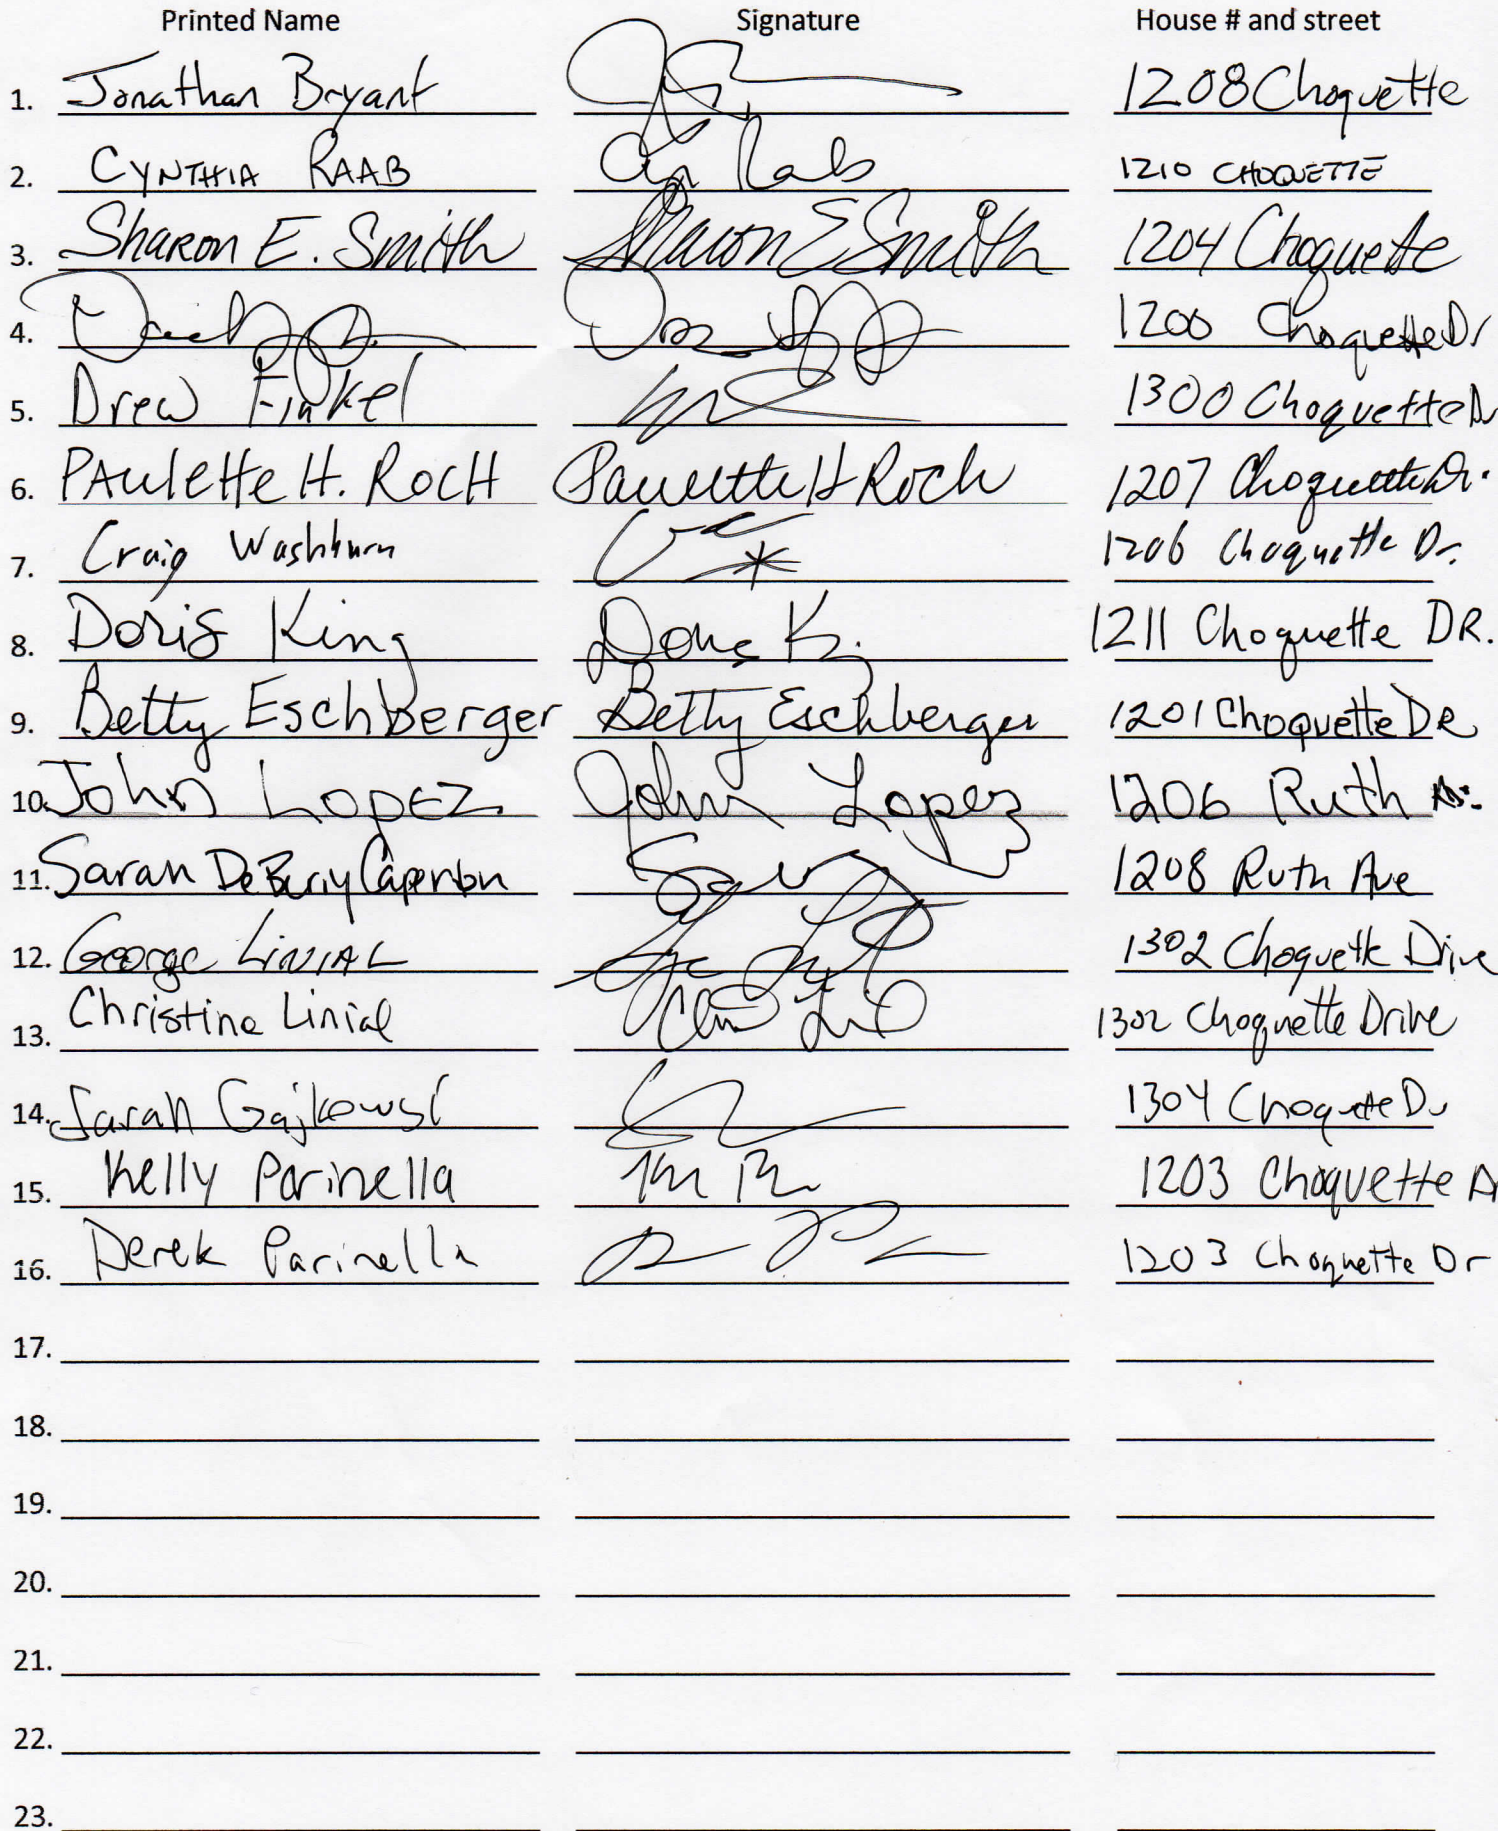 Printed Name Signature House # and street
1. Jonathan Bryant 1208 Choquette
2. CYNTHIA RAAB 1210 CHOQUETTE
3. SHARON E. SMITH Sharon E Smith 1204 Choquette
4. 1200 Choquette Dr
5. Drew Finkel 1300 Choquette Dr
6. PAulette H. ROCH Paulette H Roch 1207 Choquette Dr.
7. Craig Washburn 1206 Choquette Dr.
8. Doris King 1211 Choquette DR.
9. Betty Eschberger Betty Eschberger 1201 Choquette DR
10. John Lopez John Lopez 1206 Ruth
11. Sarah DeBerry Caperton 1208 Ruth Ave
12. George LINIAL 1302 Choquette Drive
13. Christine Linial 1302 Choquette Drive
14. Sarah Gajkowsi 1304 Choquette Dr
15. Kelly Parinella 1203 Choquette Dr
16. Derek Parinella 1203 Choquette Dr
17.
18.
19.
20.
21.
22.
23.